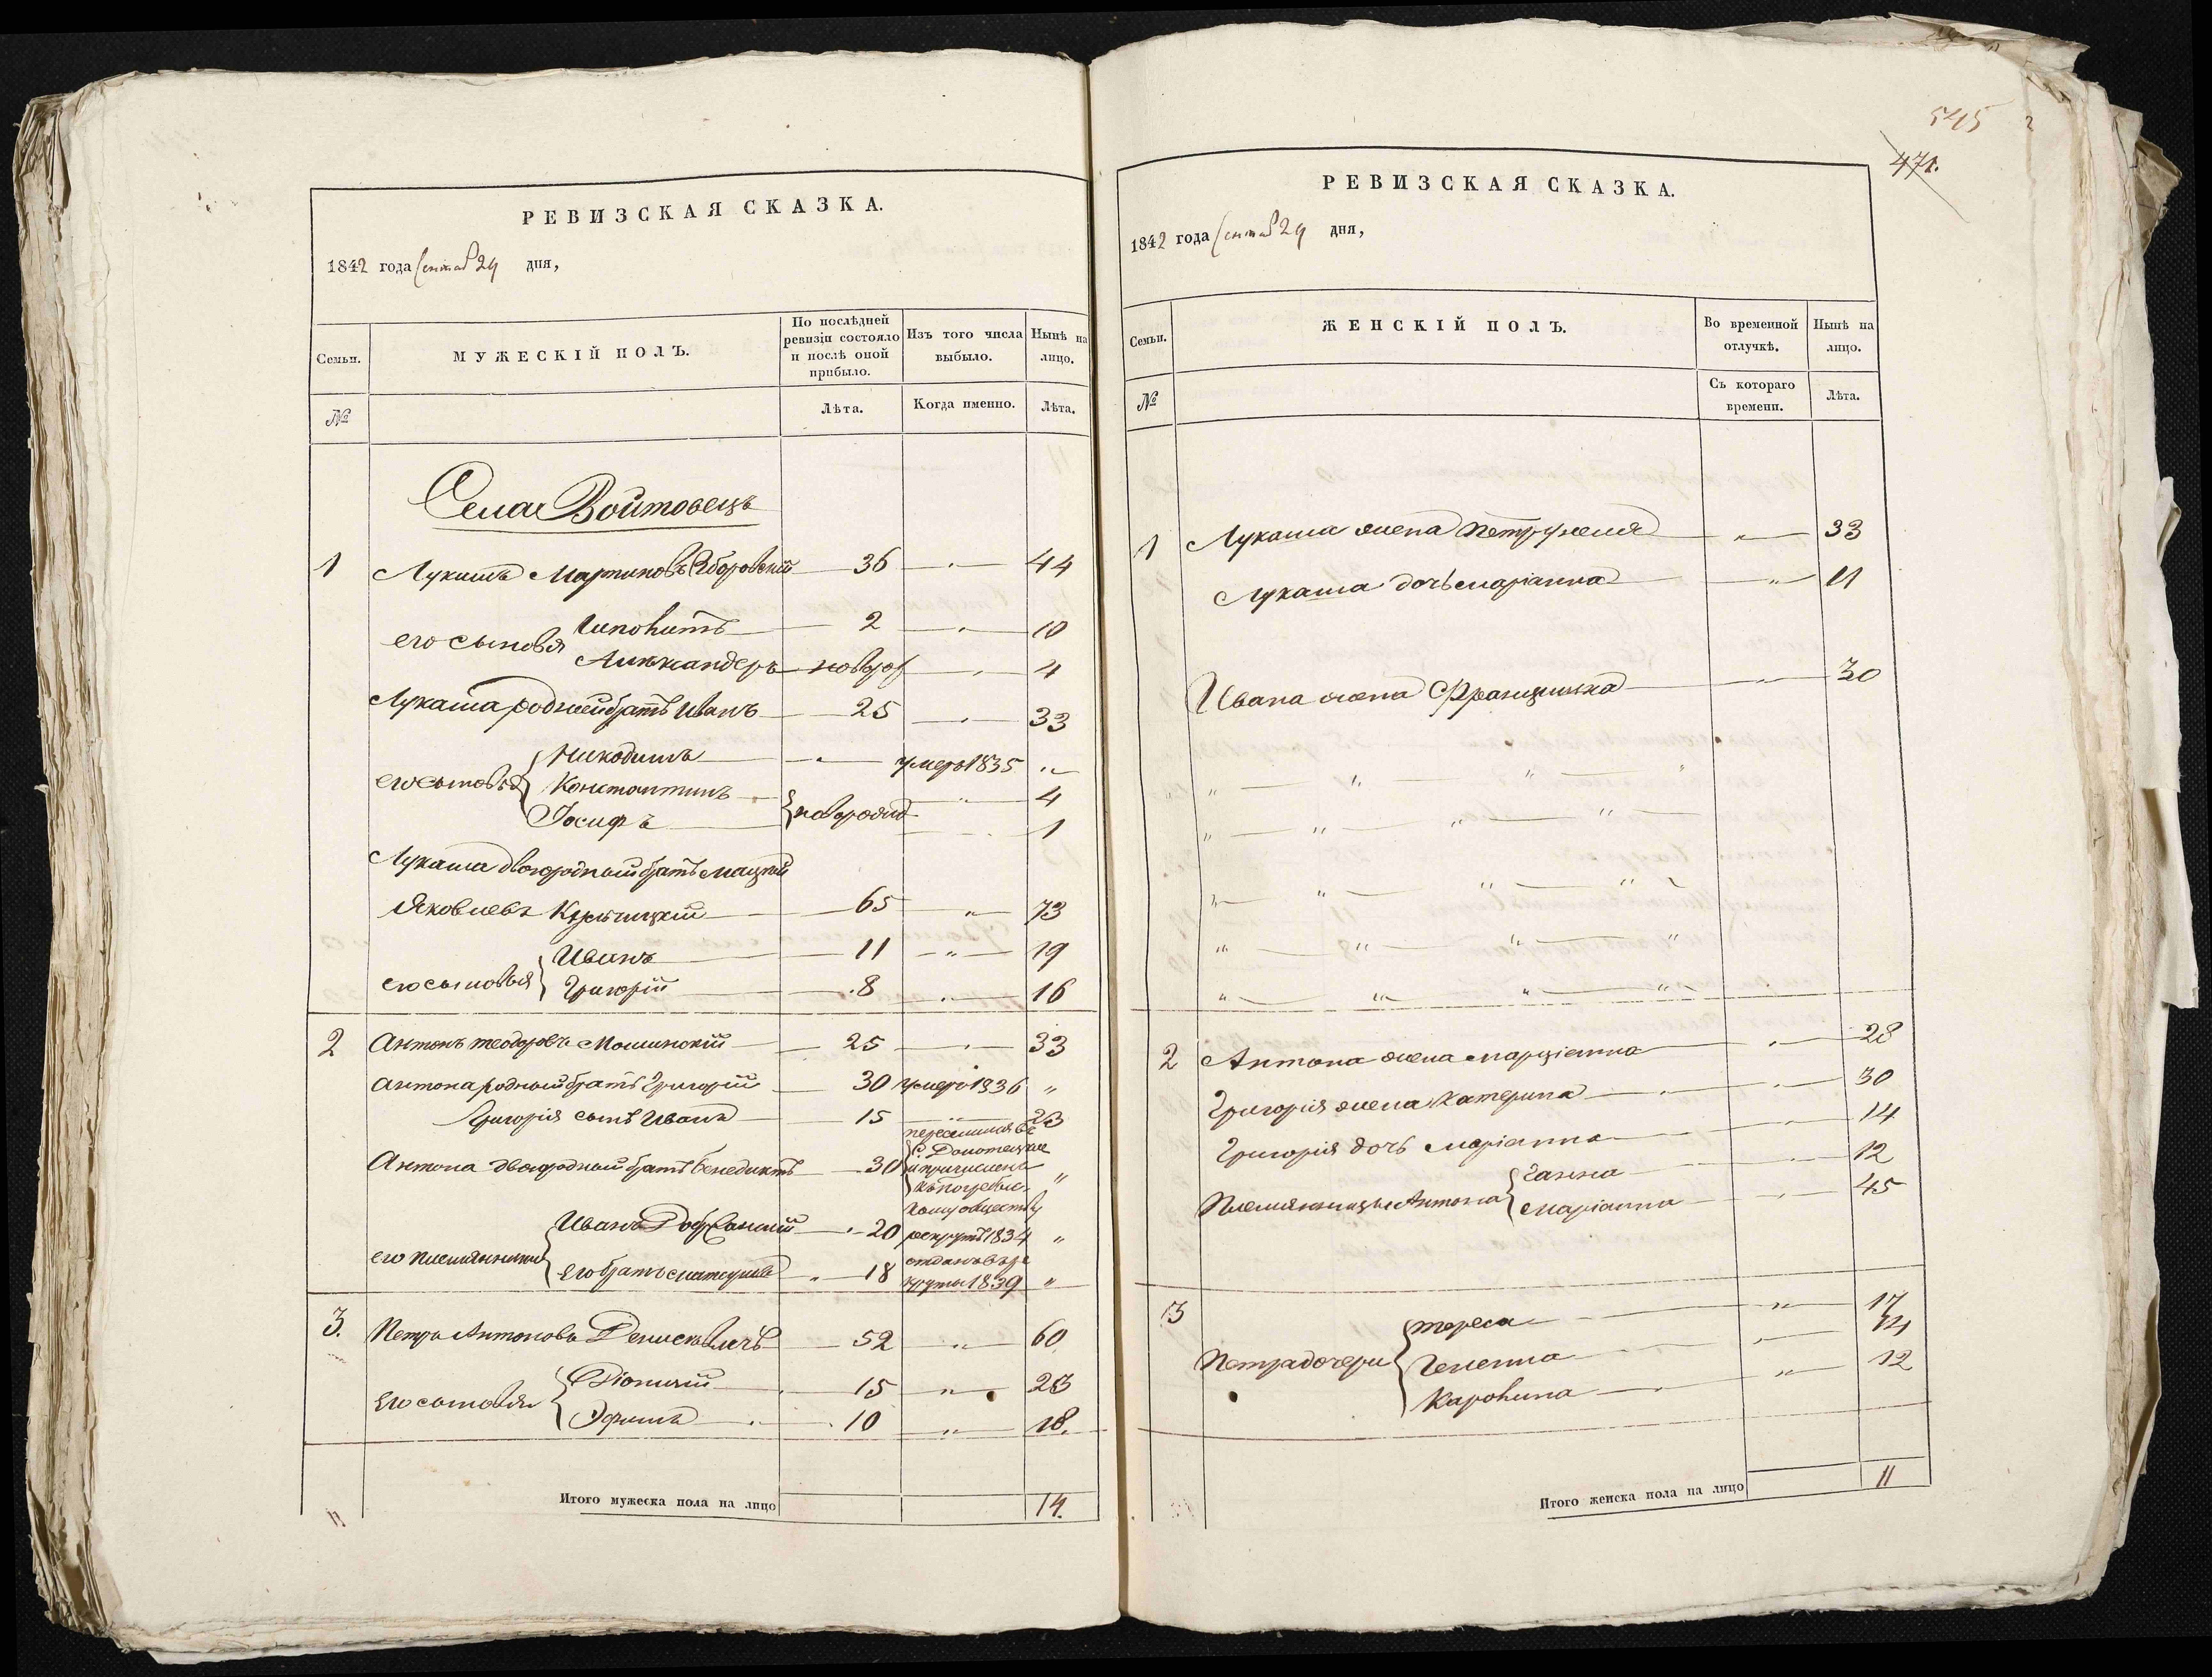 РЕВИЗСКАЯ СКАЗКА.
1842 года Сентяб 24 дня,
Семьи. МУЖЕСКІЙ ПОЛЪ. По послѣдней ревизіи состояло и послѣ оной прибыло. Изъ того числа выбыло. Нынѣ на лицо.
№ Лѣта. Когда именно. Лѣта.
Села Войтовецъ
1 Лукашъ Мартиновъ Яборовскій 36 " 44
его сыновья Ипполитъ 2 " 10
Александеръ новорож " 4
Лукаша родный братъ Иванъ 25 " 33
его сыновья { Никодимъ " умеръ 1835 "
Константинъ } новорожд " 4
Іосифъ 1
Лукаша двоюродный братъ Мацѣй
Яковлевъ 65 " 73
его сыновья { Иванъ 11 " 19
Григорій 8 " 16
2 Антонъ Теодоровъ Мошинскій 25 " 33
Антона родный братъ Григорій 30 умеръ 1836 "
Григорія сынъ Иванъ 15 " 23
Антона двоюродный братъ Бенедиктъ 30 переселился въ
с. и причисленъ "
обществу
его племянники { Иванъ 20 рекрутъ 1834 "
его братъ Матеушъ " 18 отданъ въ ре
круты 1839 "
3. Петръ Антоновъ Денисевичъ 52 " 60
его сыновья { Діонизій 15 " 23
Ефимъ 10 " 18.
Итого мужеска пола на лицо 14.
545
471.
РЕВИЗСКАЯ СКАЗКА.
1842 года Сентяб 24 дня,
Семьи. ЖЕНСКІЙ ПОЛЪ. Во временной отлучкѣ. Нынѣ на лицо.
№ Съ котораго времени. Лѣта.
1 Лукаша жена Петрунеля " 33
Лукаша дочь Маріанна " 11
Ивана жена Францишка " 30
" " " "
" " " "
" " " "
" " " "
" " " "
2 Антона жена Марціанна " 28
Григорія жена Катерина " 30
Григорія дочь Маріанна " 14
Племянницы Антона { Ганна " 12
Маріанна " 45
3 Петра дочери { Тереса " 17
Гелена " 14
Каролина " 12
Итого женска пола на лицо 11